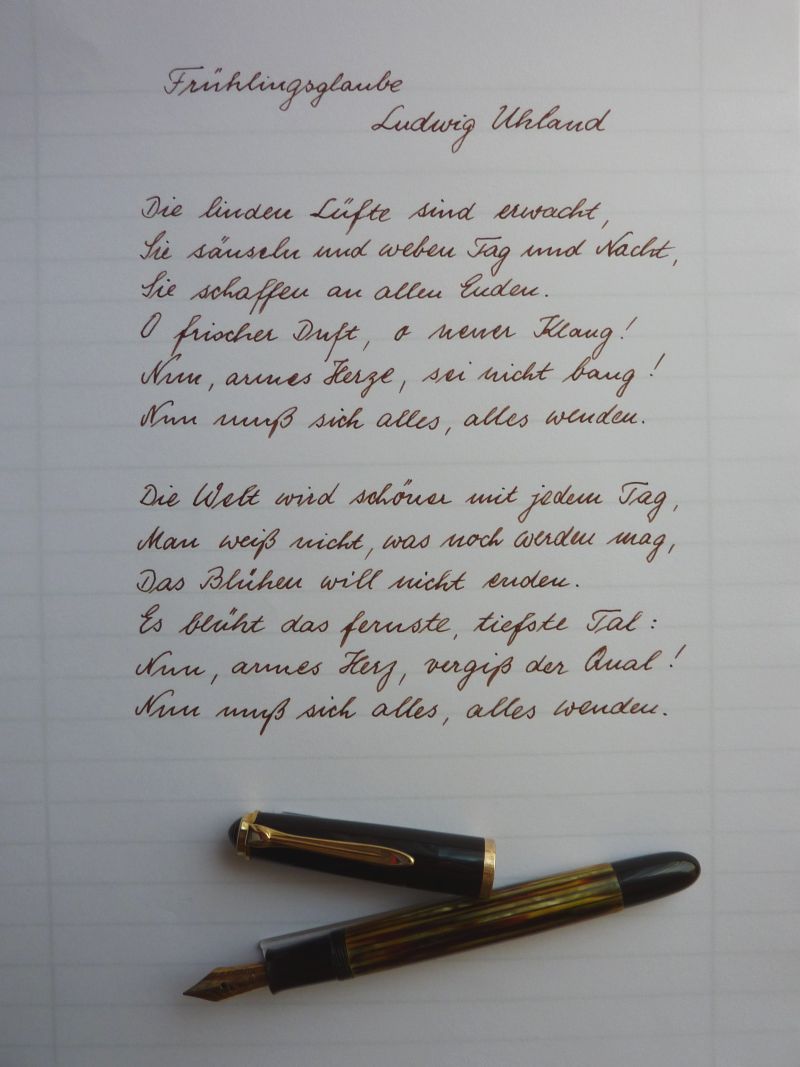 Frühlingsglaube
Ludwig Uhland
Die linden Lüfte sind erwacht,
Sie säuseln und weben Tag und Nacht,
Sie schaffen an allen Enden.
O frischer Duft, o neuer Klang!
Nun, armes Herze, sei nicht bang!
Nun muß sich alles, alles wenden.
Die Welt wird schöner mit jedem Tag,
Man weiß nicht, was noch werden mag,
Das Blühen will nicht enden.
Es blüht das fernste, tiefste Tal:
Nun, armes Herz, vergiß der Qual!
Nun muß sich alles, alles wenden.